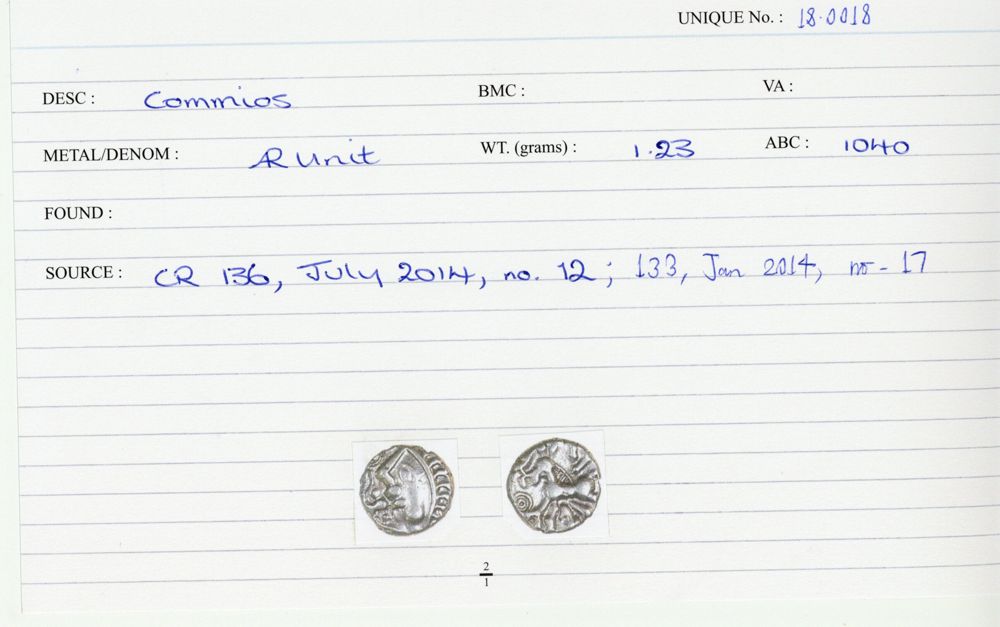 UNIQUE No. : 18.0018
DESC : Commios BMC : VA :
METAL/DENOM : AR Unit WT. (grams) : 1.23 ABC : 1040
FOUND :
SOURCE : CR 136, July 2014, no. 12; 133, Jan 2014, no - 17
2
1